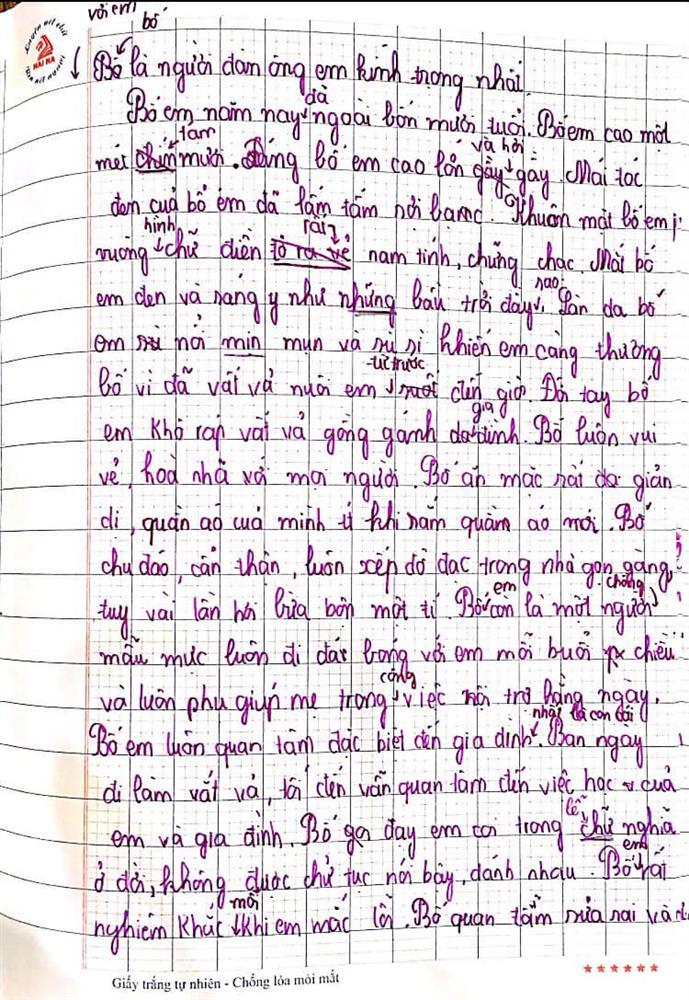 với em bố
HẢI HÀ
Bố là người đàn ông em kính trọng nhất.
đã
Bố em năm nay ngoài bốn mươi tuổi. Bố em cao một
tám và hơi
mét chín mươi. Dáng bố em cao lớn gầy gầy. Mái tóc
đen của bố em đã lấm tấm sợi bạc. Khuôn mặt bố em
hình rất
vuông chữ điền tỏ ra vẻ nam tính, chững chạc. Mắt bố
sao
em đen và sáng y như những bầu trời đầy. Làn da bố
em nổi mịn mụn và sù sì khiến em càng thương
từ trước
bố vì đã vất vả nuôi em suốt đến giờ. Đôi tay bố
gia
em khô ráp vất vả gồng gánh đình. Bố luôn vui
vẻ, hoà nhã với mọi người. Bố ăn mặc rất đơ giản
dị, quần aó cuả mình ít khi sắm quầm áo mới. Bố
chu đáo, cẩn thận, luôn xếp đồ đạc trong nhà gọn gàng,
em chồng
tuy vài lần hơi bừa bộn một tí. Bố còn là một người
mẫu mực luôn đi đá bóng với em mỗi buổi chiều
công
và luôn phụ giúp mẹ trong việc nội trợ hằng ngày.
nhất là con cái
Bố em luôn quan tâm đặc biệt đến gia đình. Ban ngày
đi làm vất vả, tối đến vẫn quan tâm đến việc học cuả
lễ
em và gia đình. Bố dạy em coi trong chữ nghĩa
em
ở đời, không được chử tục nói bậy, đánh nhau. Bố rất
mỗi
nghiêm khắc khi em mắc lỗi. Bố quan tâm sửa sai và
Giấy trắng tự nhiên - Chống lóa mỏi mắt